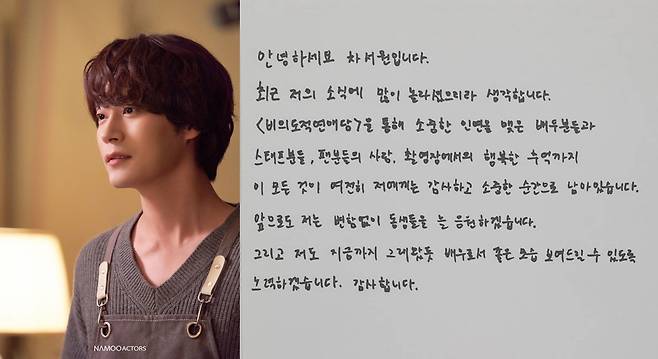 안녕하세요 차서원입니다.
최근 저의 소식에 많이 놀라셨으리라 생각합니다.
<비의도적연애담>을 통해 소중한 인연을 맺은 배우분들과
스태프분들, 팬분들의 사랑, 촬영장에서의 행복한 추억까지
이 모든 것이 여전히 저에게는 감사하고 소중한 순간으로 남아있습니다.
앞으로도 저는 변함없이 동생들을 늘 응원하겠습니다.
그리고 저도 지금까지 그래왔듯 배우로서 좋은 모습 보여드릴 수 있도록
노력하겠습니다. 감사합니다.
NAMOOACTORS